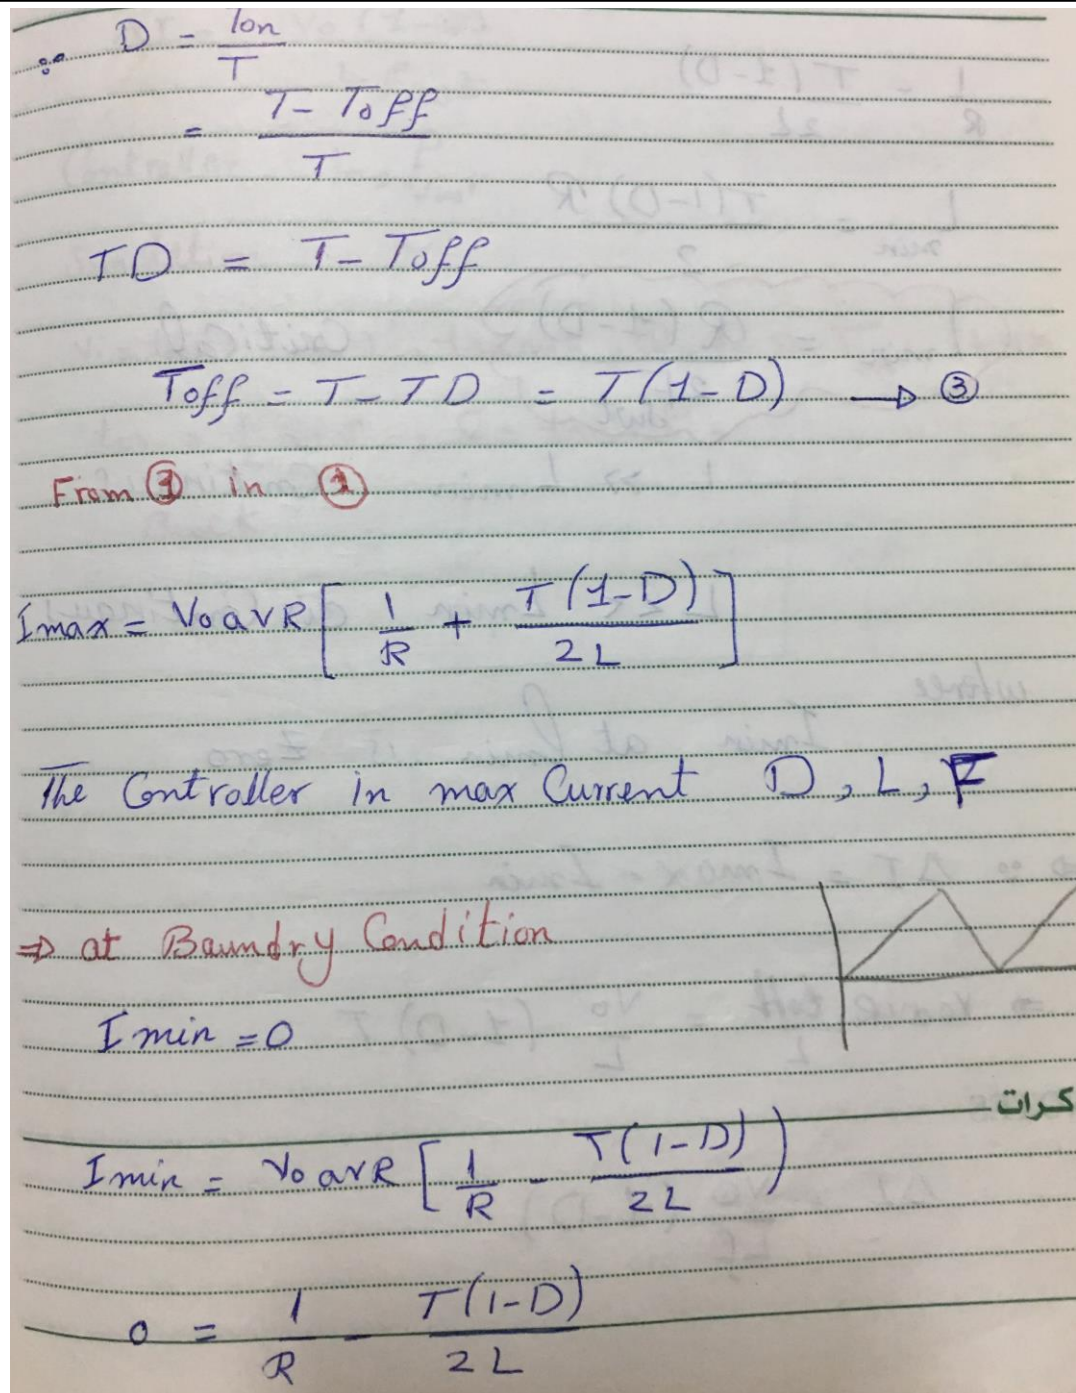 ∵ D = Ton / T
= T - Toff / T
TD = T - Toff
Toff = T - TD = T(1-D) → ③
From ③ in ①
Imax = Vo avR [ 1/R + T(1-D)/2L ]
The Controller in max Current D, L, F
⇒ at Baundry Condition
I min = 0
كرات
I min = Vo avR [ 1/R - T(1-D)/2L )
0 = 1/R - T(1-D)/2L